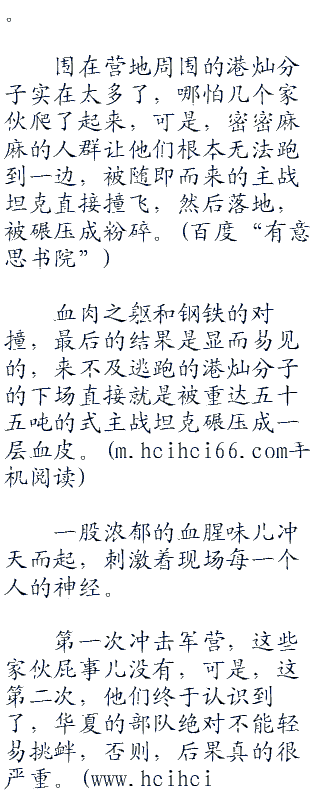 。
围在营地周围的港灿分
子实在太多了，哪怕几个家
伙爬了起来，可是，密密麻
麻的人群让他们根本无法跑
到一边，被随即而来的主战
坦克直接撞飞，然后落地，
被碾压成粉碎。(百度“有意
思书院”)
血肉之躯和钢铁的对
撞，最后的结果是显而易见
的，来不及逃跑的港灿分子
的下场直接就是被重达五十
五吨的式主战坦克碾压成一
层血皮。(m.hcihci66.com手
机阅读)
一股浓郁的血腥味儿冲
天而起，刺激着现场每一个
人的神经。
第一次冲击军营，这些
家伙屁事儿没有，可是，这
第二次，他们终于认识到
了，华夏的部队绝对不能轻
易挑衅，否则，后果真的很
严重。(www.hcihci